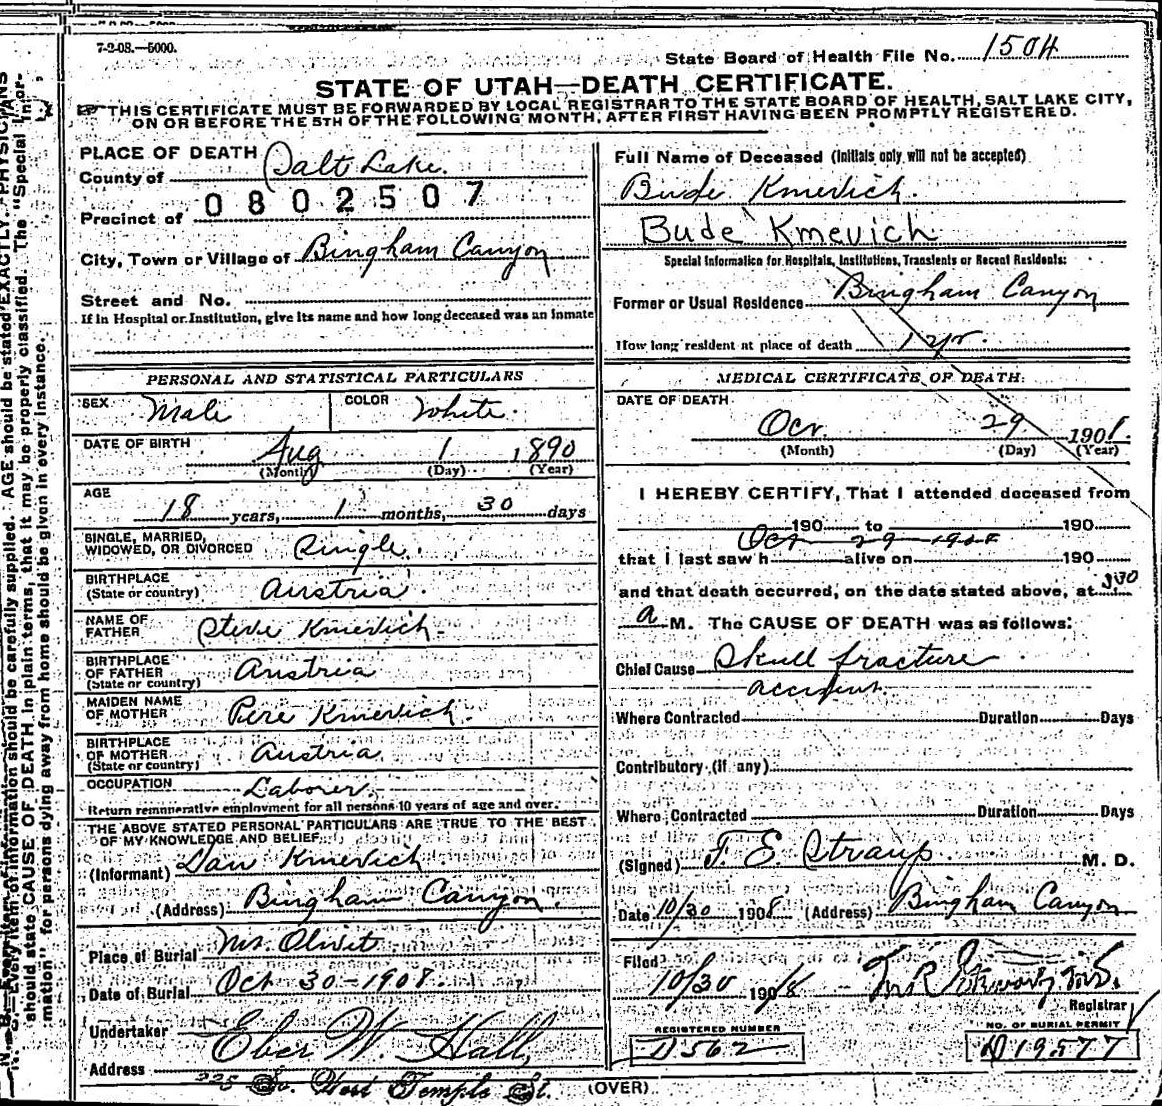 7-2-08.—5000.
State Board of Health File No. 1504
STATE OF UTAH—DEATH CERTIFICATE.
THIS CERTIFICATE MUST BE FORWARDED BY LOCAL REGISTRAR TO THE STATE BOARD OF HEALTH, SALT LAKE CITY,
ON OR BEFORE THE 5TH OF THE FOLLOWING MONTH, AFTER FIRST HAVING BEEN PROMPTLY REGISTERED.
PLACE OF DEATH
County of Salt Lake.
0802507
Precinct of
City, Town or Village of Bingham Canyon
Street and No.
If in Hospital or Institution, give its name and how long deceased was an inmate
PERSONAL AND STATISTICAL PARTICULARS
SEX Male COLOR White.
DATE OF BIRTH Aug 1 1890
(Month) (Day) (Year)
AGE
18 years, 1 months, 30 days
SINGLE, MARRIED,
WIDOWED, OR DIVORCED Single.
BIRTHPLACE
(State or country) Austria.
NAME OF
FATHER Steve Kmevich
BIRTHPLACE
OF FATHER
(State or country) Austria
MAIDEN NAME
OF MOTHER Pere Kmevich.
BIRTHPLACE
OF MOTHER
(State or country) Austria
OCCUPATION Laborer,
Return remunerative employment for all persons 10 years of age and over.
THE ABOVE STATED PERSONAL PARTICULARS ARE TRUE TO THE BEST
OF MY KNOWLEDGE AND BELIEF
(Informant) Dan Kmevich
(Address) Bingham Canyon.
Place of Burial Mt. Olivet
Date of Burial Oct 30-1908.
Undertaker Eber W. Hall,
Address 225 So. West Temple St.
(OVER)
Full Name of Deceased (Initials only will not be accepted)
Bude Kmevich.
Bude Kmevich
Special Information for Hospitals, Institutions, Transients or Recent Residents:
Former or Usual Residence Bingham Canyon
How long resident at place of death 1 yr.
MEDICAL CERTIFICATE OF DEATH.
DATE OF DEATH
Oct. 29 1908.
(Month) (Day) (Year)
I HEREBY CERTIFY, That I attended deceased from
190 to 190
Oct 29 1908
that I last saw h alive on 190
and that death occurred, on the date stated above, at 3:30
a M. The CAUSE OF DEATH was as follows:
Chief Cause Skull fracture
accident.
Where Contracted Duration Days
Contributory (if any)
Where Contracted Duration Days
(Signed) F. E. Straup. M. D.
Date 10/30 1908 (Address) Bingham Canyon
Filed 10/30 1908
Registrar
REGISTERED NUMBER
D562
NO. OF BURIAL PERMIT
D19577
N. B.—Every item of information should be carefully supplied. AGE should be stated EXACTLY. PHYSICIANS
should state CAUSE OF DEATH in plain terms, that it may be properly classified. The "Special Infor-
mation" for persons dying away from home should be given in every instance.